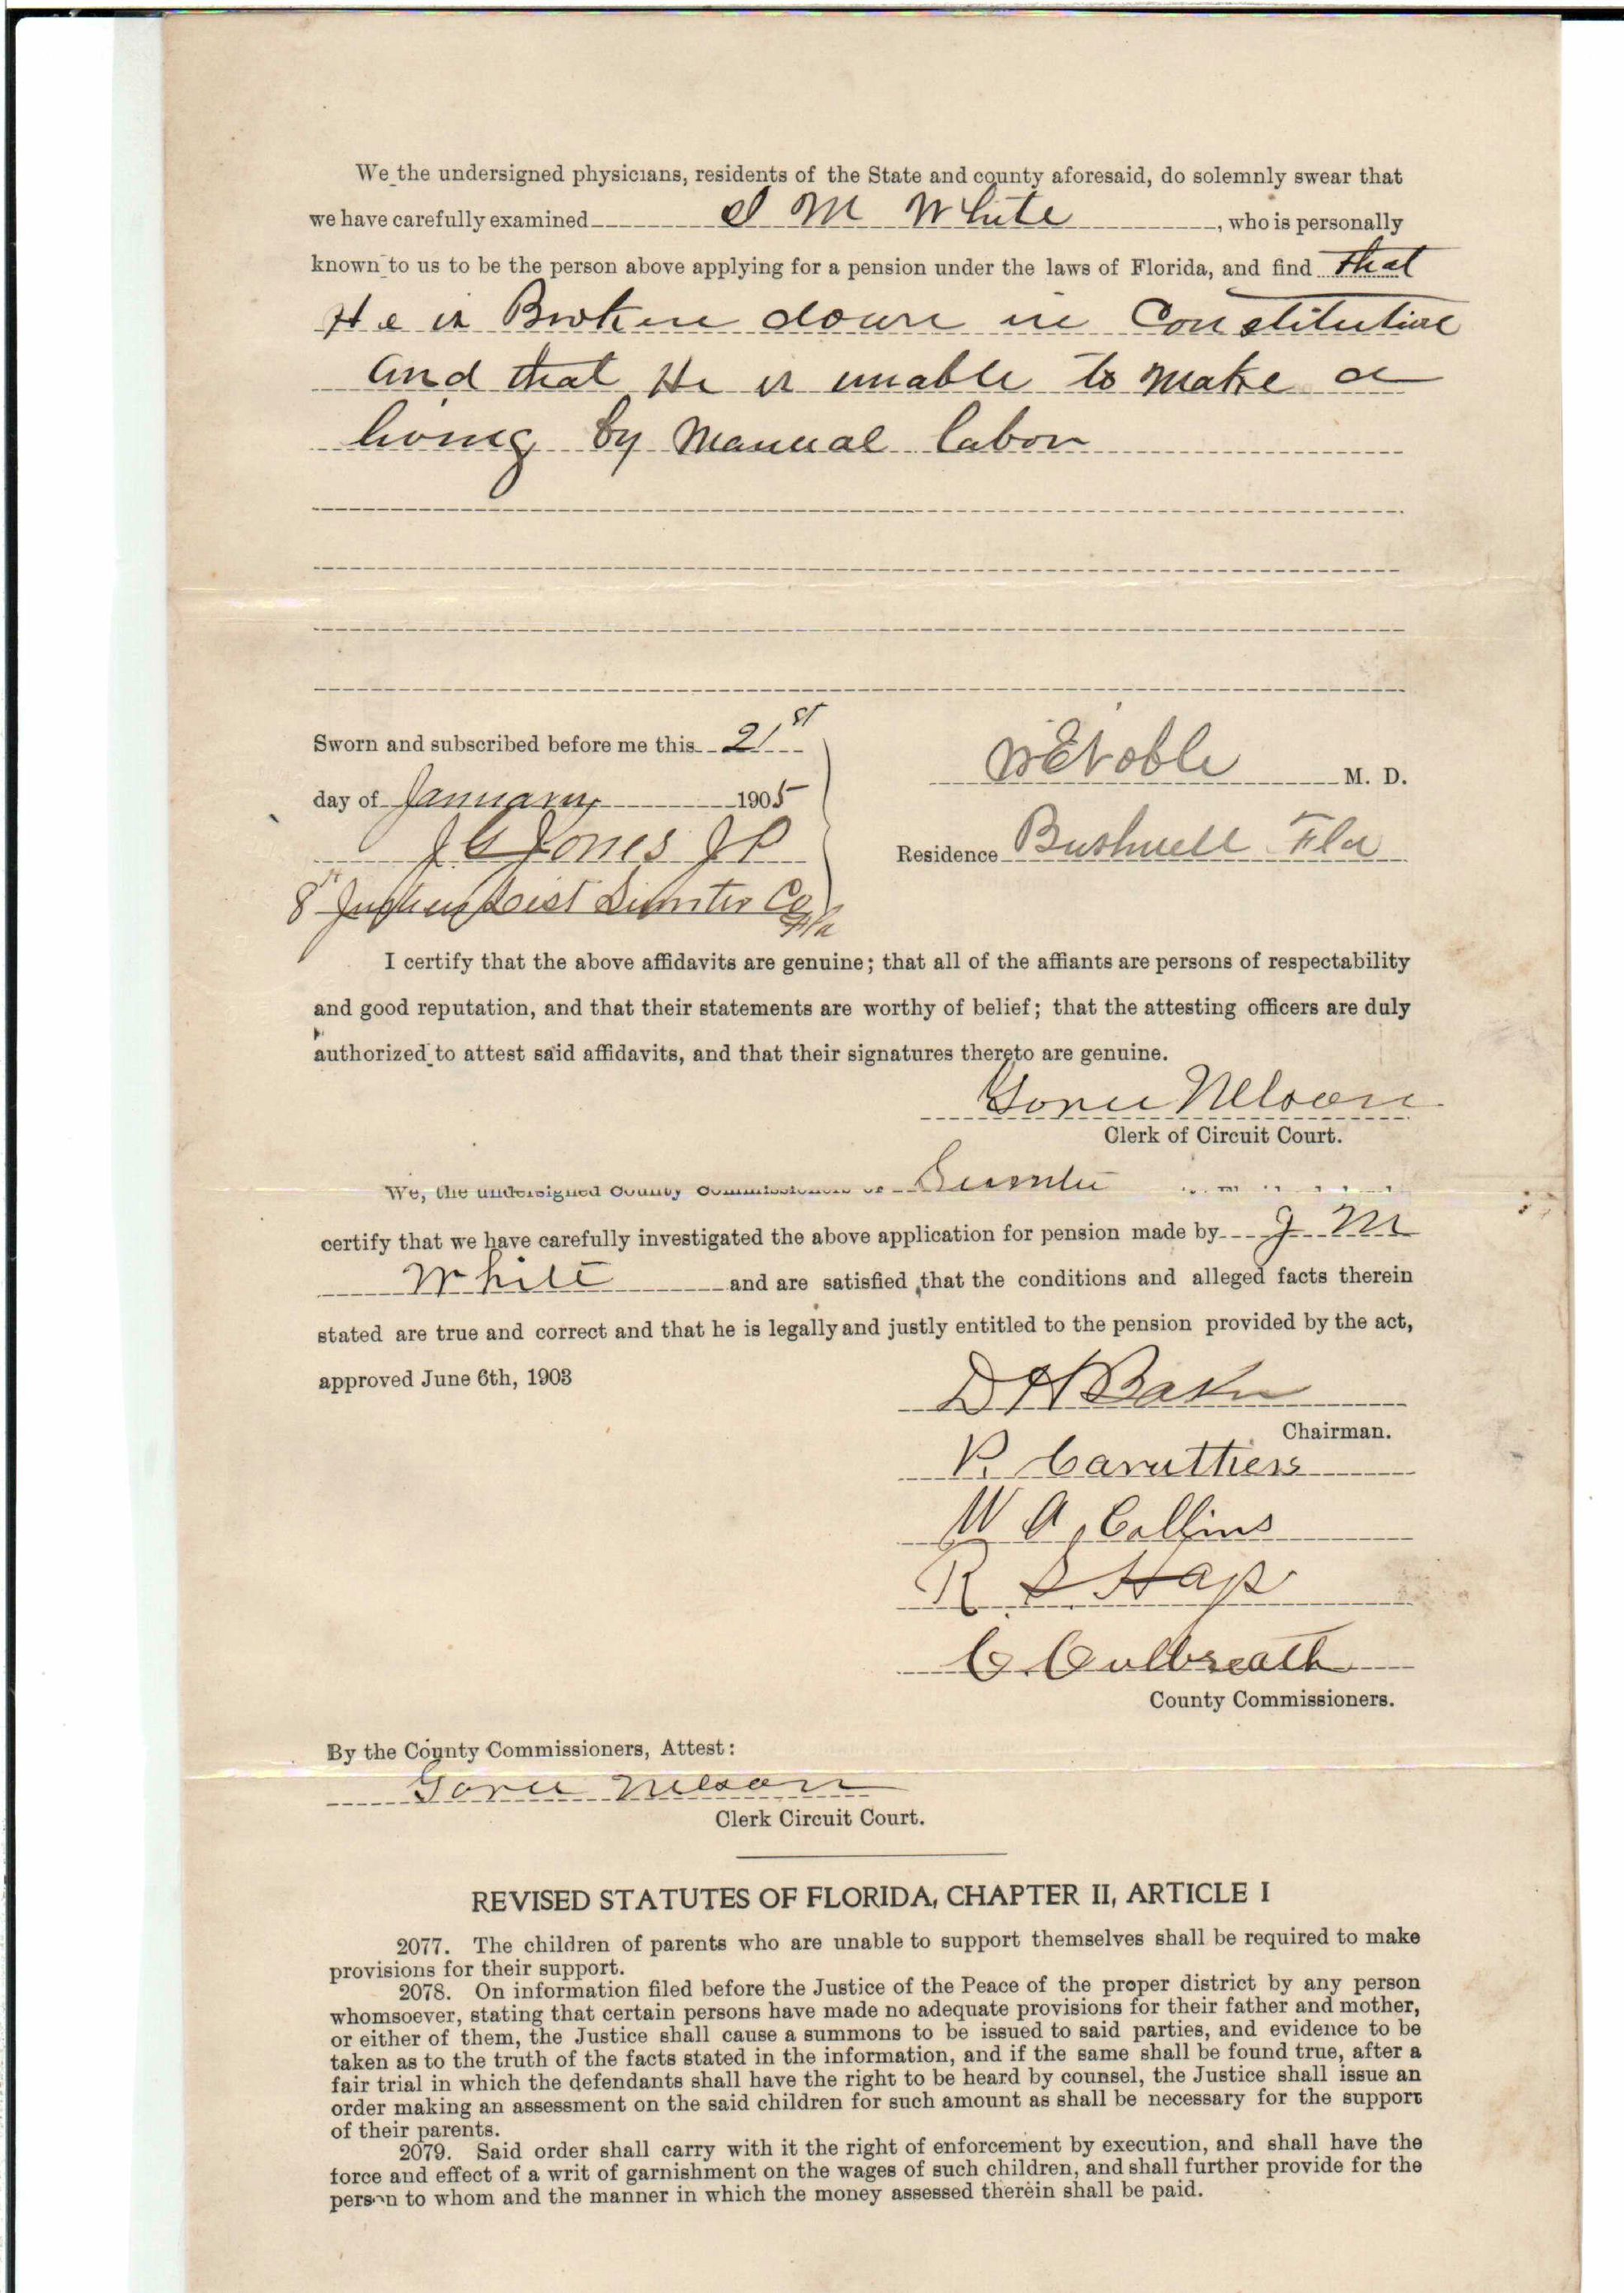 We the undersigned physicians, residents of the State and county aforesaid, do solemnly swear that
we have carefully examined J M White, who is personally
known to us to be the person above applying for a pension under the laws of Florida, and find that
He is Broken down in Constitution
and that He is unable to make a
living by manual labor
Sworn and subscribed before me this 21st
day of January 1905
J G Jones J P
8" Dist Sumter Co
Fla
W E Noble M. D.
Residence Bushnell Fla
I certify that the above affidavits are genuine; that all of the affiants are persons of respectability
and good reputation, and that their statements are worthy of belief; that the attesting officers are duly
authorized to attest said affidavits, and that their signatures thereto are genuine.
Nelson
Clerk of Circuit Court.
We, the undersigned County Commissioners of Sumter
certify that we have carefully investigated the above application for pension made by J M
White and are satisfied that the conditions and alleged facts therein
stated are true and correct and that he is legally and justly entitled to the pension provided by the act,
approved June 6th, 1903
D H Baker
Chairman.
P. Caruthers
W A Collins
R S
C. Culbreath
County Commissioners.
By the County Commissioners, Attest:
Nelson
Clerk Circuit Court.
REVISED STATUTES OF FLORIDA, CHAPTER II, ARTICLE I
2077. The children of parents who are unable to support themselves shall be required to make
provisions for their support.
2078. On information filed before the Justice of the Peace of the proper district by any person
whomsoever, stating that certain persons have made no adequate provisions for their father and mother,
or either of them, the Justice shall cause a summons to be issued to said parties, and evidence to be
taken as to the truth of the facts stated in the information, and if the same shall be found true, after a
fair trial in which the defendants shall have the right to be heard by counsel, the Justice shall issue an
order making an assessment on the said children for such amount as shall be necessary for the support
of their parents.
2079. Said order shall carry with it the right of enforcement by execution, and shall have the
force and effect of a writ of garnishment on the wages of such children, and shall further provide for the
person to whom and the manner in which the money assessed therein shall be paid.